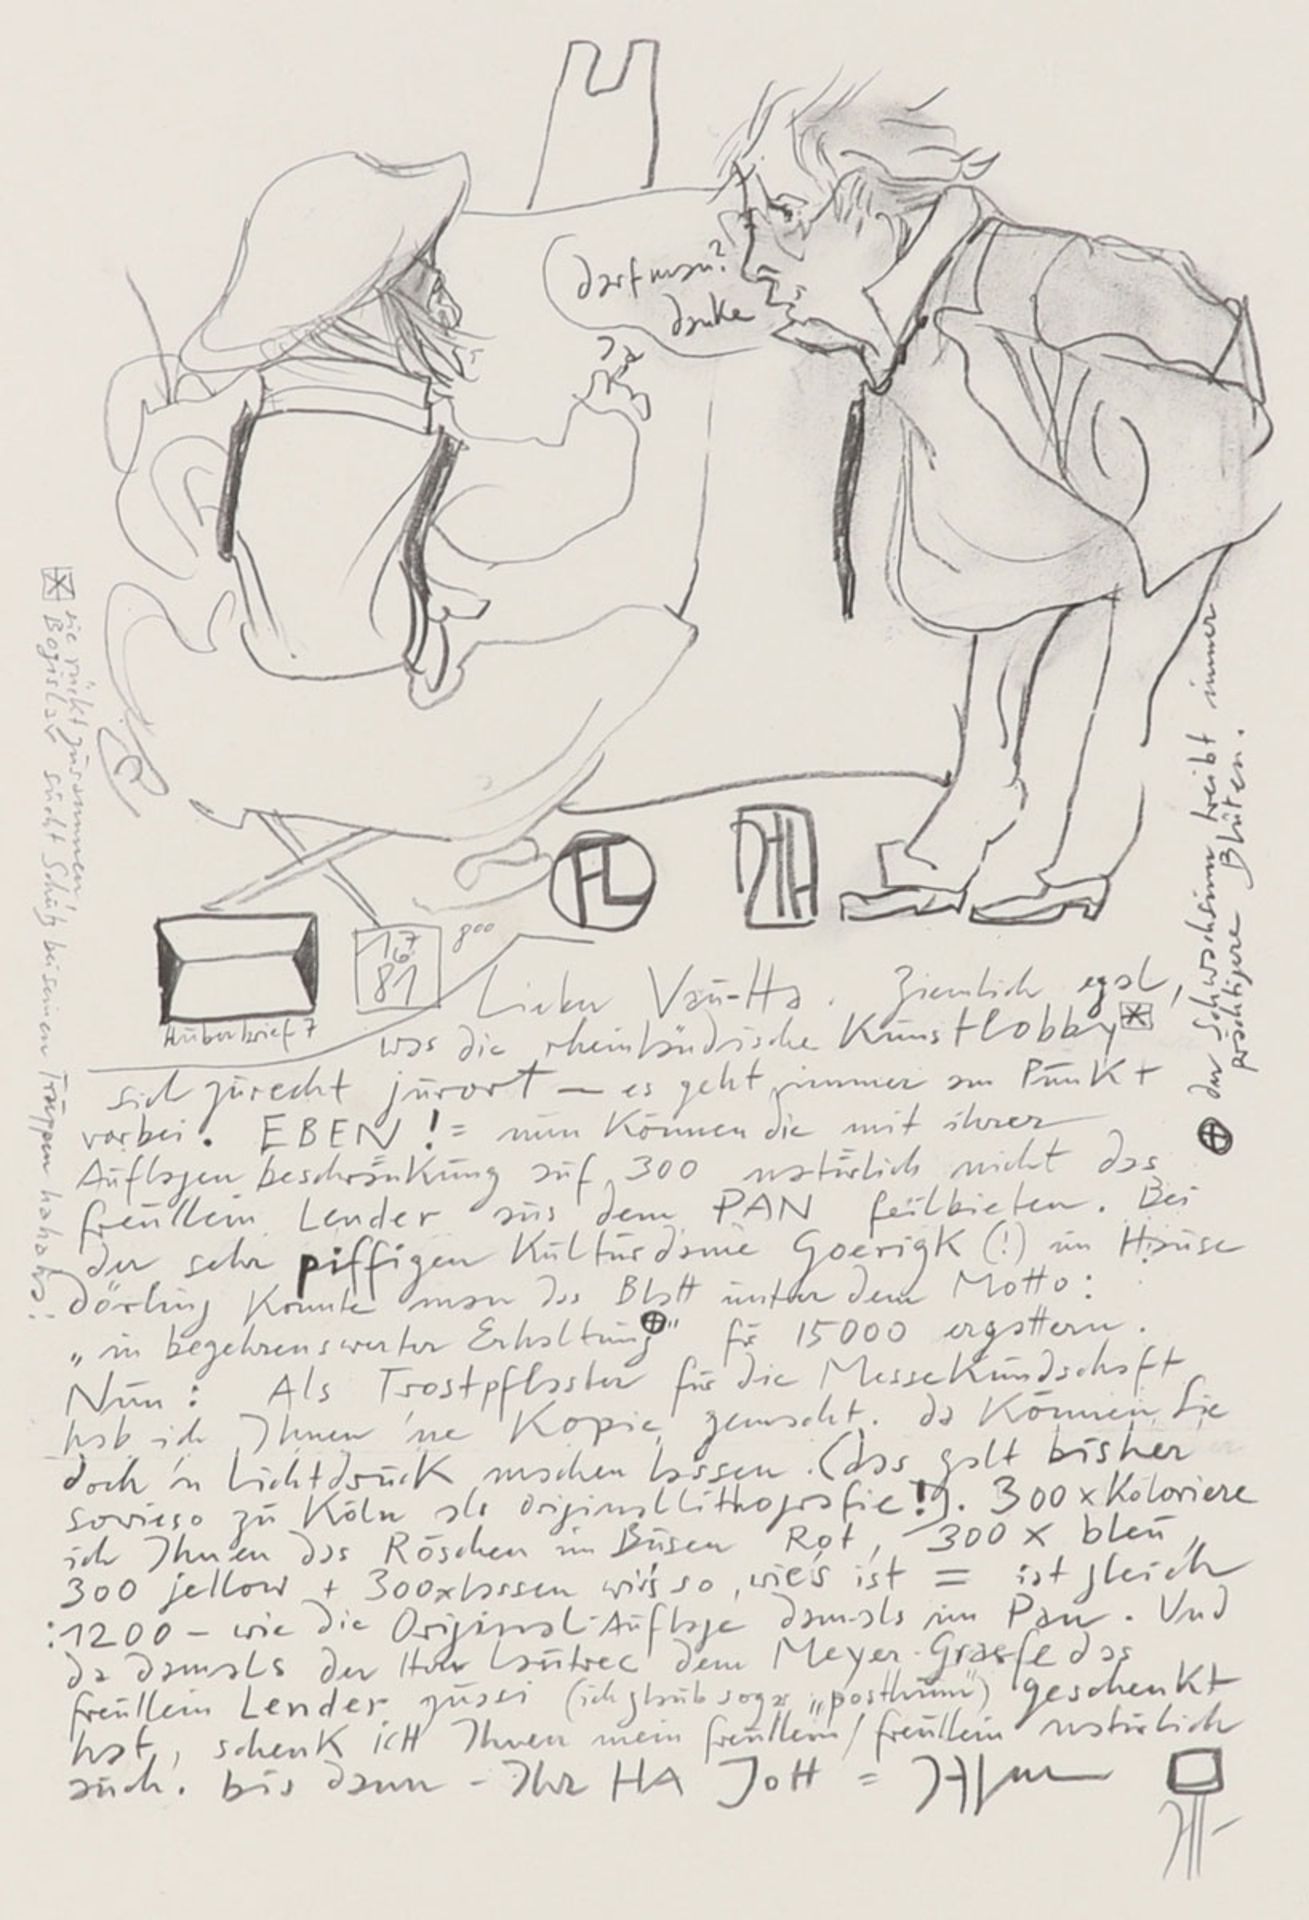 darf man?
danke
Ja
HL
JHH
16 7
81
800
Huberbrief 7
Lieber Vau-Ha. Ziemlich egal,
was die rheinländische Kunstlobby
sich zurecht jurort — es geht immer am Punkt
vorbei. EBEN! = nun können die mit ihrer
Auflagenbeschränkung auf 300 natürlich nicht das
freullein Lender aus dem PAN feilbieten. Bei
der sehr piffigen Kulturdame Goerigk (!) im Hause
dörling konnte man das Blatt unter dem Motto:
„in begehrenswerter Erhaltung“ für 15000 ergattern.
Nun: Als Trostpflaster für die Messekundschaft
hab ich Ihnen 'ne Kopie gemacht. da können Sie
doch 'n Lichtdruck machen lassen. (das galt bisher
sowieso zu Köln als Originallithografie!). 300x koloriere
ich Ihnen das Röschen im Busen Rot, 300 x bleu,
300 jellow + 300x lassen wir's so, wie's ist = ist gleich
:1200 — wie die Original-Auflage damals im Pan. Und
da damals der Herr Lautrec dem Meyer-Graefe das
freullein Lender quasi (ich glaub sogar „posthum“) geschenkt
hat, schenk ich Ihnen mein freullein/freullein natürlich
auch. bis dann - Ihr HA Jott =
sie rückt zusammen,
Bogislav sucht Schutz bei seinem Truppen hahaha!
der Schwachsinn treibt immer
prächtigere Blüten.